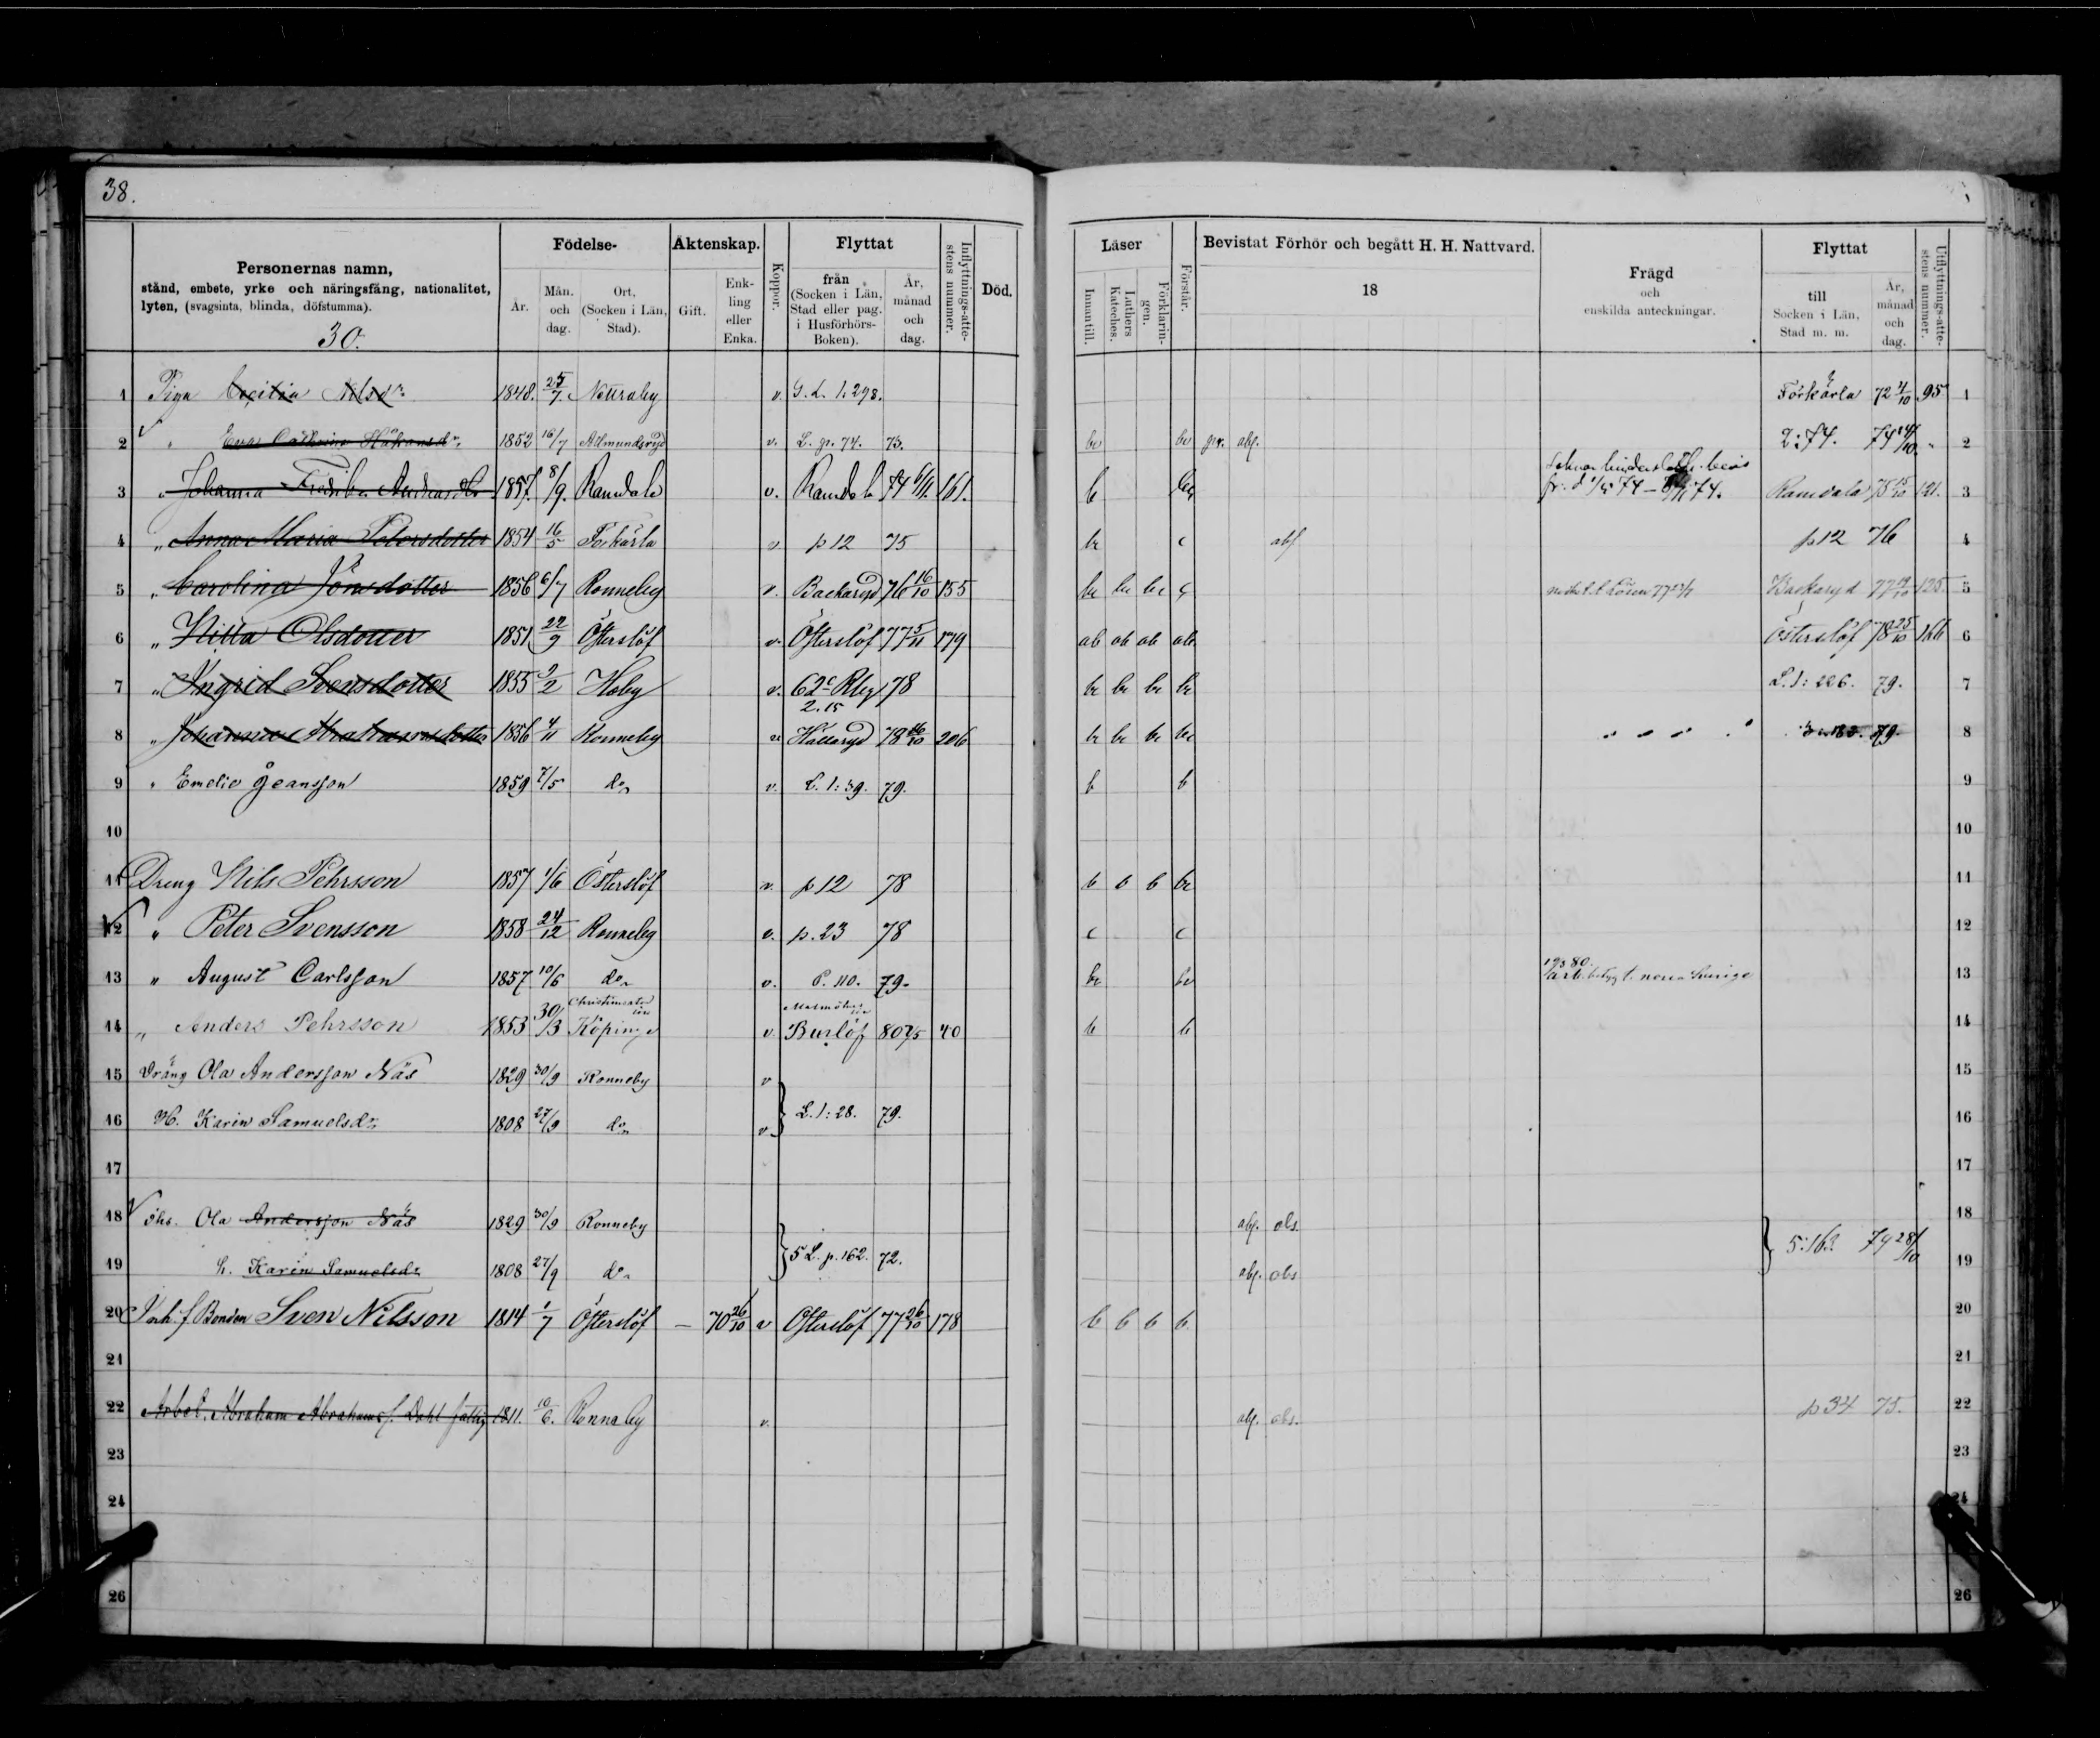 38.
Personernas namn,
stånd, embete, yrke och näringsfång, nationalitet,
lyten, (svagsinta, blinda, döfstumma).
30.
Födelse-
År. Mån. och dag. Ort, (Socken i Län, Stad).
Äktenskap.
Gift. Enk- ling eller Enka.
Koppor.
Flyttat
från (Socken i Län, Stad eller pag. i Husförhörs- Boken). År, månad och dag.
Inflyttnings-atte- stens nummer.
Död.
Läser
Innantill. Luthers Kateches. Förklarin- gen.
Förstår.
Bevistat Förhör och begått H. H. Nattvard.
18
Frägd
och
enskilda anteckningar.
Flyttat
till Socken i Län, Stad m. m. År, månad och dag.
Utflyttnings-atte- stens nummer.
1 Piga Cecilia Nilsdr 1848. 25/7. Nettraby v. G. L. 1:298. Förkärla 72 4/10 95 1
2 " Eva Cathrina Håkansdr 1852 16/7 Almundsryd v. L. p. 74. 73. be be pr. abf. 2:74. 74 14/10 " 2
3 " Johanna Fredrika Andreasdr 1857. 8/9. Ramdala v. Ramdala 74 6/11. 161. b Ramdala 75 15/10 121. 3
4 " Anna Maria Petersdotter 1854 16/5 Förkärla v p 12 75 be c abf p 12 76 4
5 " Carolina Jönsdotter 1856 6/7 Ronneby v. Backaryd 76 16/10 155 be be be c Backaryd 77 125. 5
6 " Kitta Olsdotter 1851 22/9 Österslöf v. Österslöf 77 5/11 179 ab ab ab ab. Österslöf 78 25/10 166 6
7 " Ingrid Svensdotter 1855 9/2 Hoby v. 62c Rby 78 be be be be L. 1: 226. 79. 7
2.15
8 " Johanna Abrahamsdotter 1856 4/11 Ronneby v Hallaryd 78 16/10 206 be be be be 79. 8
9 " Emelie Jeansson 1859 7/5 do v. L. 1: 39. 79. b b 9
10 10
11 Dreng Nils Pehrsson 1857 1/6 Österslöf v. p 12 78 b b b be 11
12 " Peter Svensson 1858 24/12 Ronneby v. p. 23 78 c c 12
13 " August Carlsson 1857 10/6 do v. P. 110. 79. be be 13
14 " Anders Pehrsson 1853 30/3 Köpinge v. Burlöf 80 40 b b 14
15 Dräng Ola Andersson Näs 1829 30/9 Ronneby v 15
16 M. Karin Samuelsdr 1808 27/9 do v L. 1: 28. 79. 16
17 17
18 Ths. Ola Andersson Näs 1829 30/9 Ronneby abf. obs. 18
5 L. p. 162. 72. 5:163. 74 28/10
19 h. Karin Samuelsdr 1808 27/9 do abf. obs 19
20 Enk. f Bonden Sven Nilsson 1814 1/7 Österslöf — 70 26/10 v Österslöf 77 26/10 178 b b b b. 20
21 21
22 Arbet. Abraham Abrahamsf. Dahl fattig 1811. 10/6. Ronneby v. abf. obs. p 34 75. 22
23 23
24 24
26 26